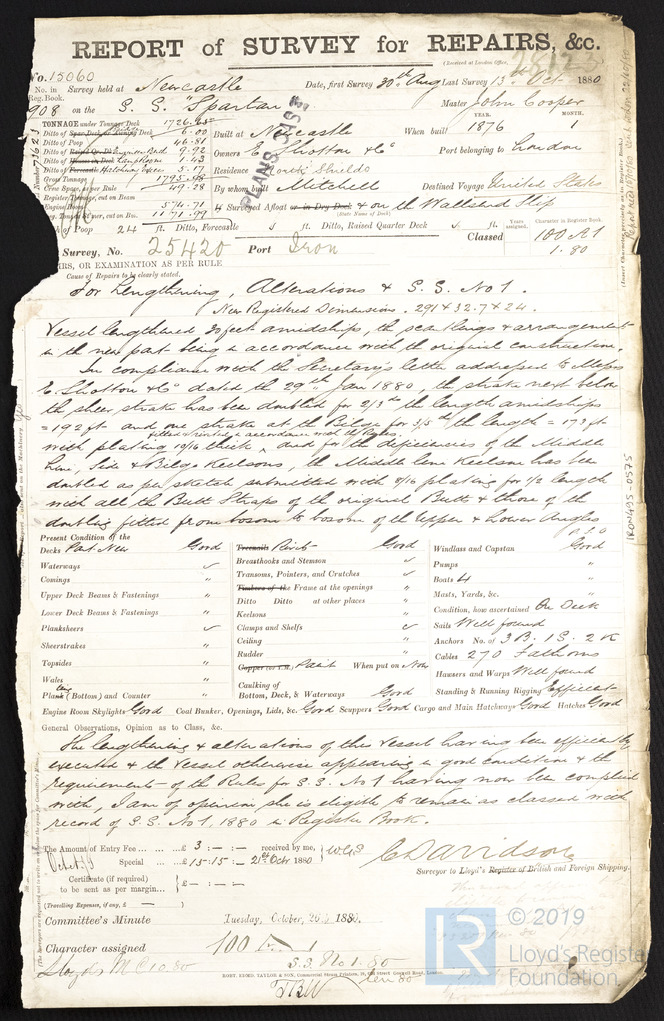 REPORT of SURVEY for REPAIRS, &c.
(Received at London Office,
No. 15060
No. in Reg. Book. Survey held at Newcastle Date, first Survey 30th Aug Last Survey 13th Oct 1880
908 on the S. S. "Spartan" Master John Cooper
TONNAGE under Tonnage Deck 1726.
Ditto of Spar Deck, or Awning Deck 6.00
Ditto of Poop 46.81
Ditto of Raised Qr. Deck
Ditto of Houses on Deck Lamp Room 1.43
Ditto of Forecastle Hatchway Excess 5.17
Gross Tonnage
Crew Space, as per Rule 49.28
Register Tonnage, cut on Beam
574.71
1171.99
Built at Newcastle When built YEAR. 1876 MONTH. 1
Owners E. Shotton & Co Port belonging to London
Residence North Shields
By whom built Mitchell Destined Voyage United States
If Surveyed Afloat or in Dry Dock & on the Wallsend Slip
(State Name of Dock)
of Poop 24 ft. Ditto, Forecastle ft. Ditto, Raised Quarter Deck ft.
Classed Years assigned. Character in Register Book. 100 A1
1.80
Survey, No. 25420 Port Iron
PLANS 333
IRS, OR EXAMINATION AS PER RULE
Cause of Repairs to be clearly stated.
For Lengthening, Alterations & S. S. No 1.
New Registered Dimensions. 291 x 32.7 x 24.
Vessel lengthened 30 feet amidships, the scantlings & arrangement
in the new part being in accordance with the original construction.
In compliance with the Secretary's letter addressed to Messrs
E. Shotton & Co dated the 29th Jan 1880, the strake next below
the sheer strake has been doubled for 2/3rds the length amidships
= 192 ft and one strake at the Bilge for 3/5ths the length = 173 ft
with plating 10/16 thick, and for the deficiencies of the Middle
Line, Side & Bilge Keelsons, the Middle line Keelson has been
doubled as per sketch submitted with 9/16 plating for 1/2 length
with all the Butt Straps of the original Butts & those of the
doubling fitted from bosom to bosom of the Upper & Lower Angles
P.T.O
Present Condition of the
Decks Part New Good
Waterways ✓
Comings "
Upper Deck Beams & Fastenings "
Lower Deck Beams & Fastenings "
Planksheers ✓
Sheerstrakes "
Topsides "
Wales "
Plank (Bottom) and Counter "
Treenails Rivets Good
Breasthooks and Stemson ✓
Transoms, Pointers, and Crutches ✓
Timbers of the Frame at the openings "
Ditto Ditto at other places "
Keelsons "
Clamps and Shelfs ✓
Ceiling "
Rudder "
Copper (as I.a. Paint When put on Now
Caulking of
Bottom, Deck, & Waterways Good
Windlass and Capstan Good
Pumps "
Boats 4 "
Masts, Yards, &c. "
Condition, how ascertained On Deck
Sails Well found
Anchors No. of 3 B. 1 S. 2 K
Cables 270 Fathoms
Hawsers and Warps Well found
Standing & Running Rigging Efficient
Engine Room Skylights Good Coal Bunker, Openings, Lids, &c. Good Scuppers Good Cargo and Main Hatchways Good Hatches Good
General Observations, Opinion as to Class, &c.
The lengthening & alterations of this Vessel having been efficiently
executed & the Vessel otherwise appearing in good condition & the
requirements of the Rules for S. S. No 1 having now been complied
with, I am of opinion she is eligible to remain as classed with
record of S. S. No 1, 1880 in Register Book.
The Amount of Entry Fee £ 3 : - : - received by me,
Special £ 15 : 15 : - 21st Octr 1880
Certificate (if required) £ - : - : -
to be sent as per margin
(Travelling Expenses, if any, £ — )
C Davidson
Surveyor to Lloyd's Register of British and Foreign Shipping.
Committee's Minute Tuesday, October, 26th, 1880.
Character assigned 100 A 1
Lloyds M C 10.80 S.S. No 1. 80
IRON495-0575
LR © 2019
Lloyd's Register
Foundation